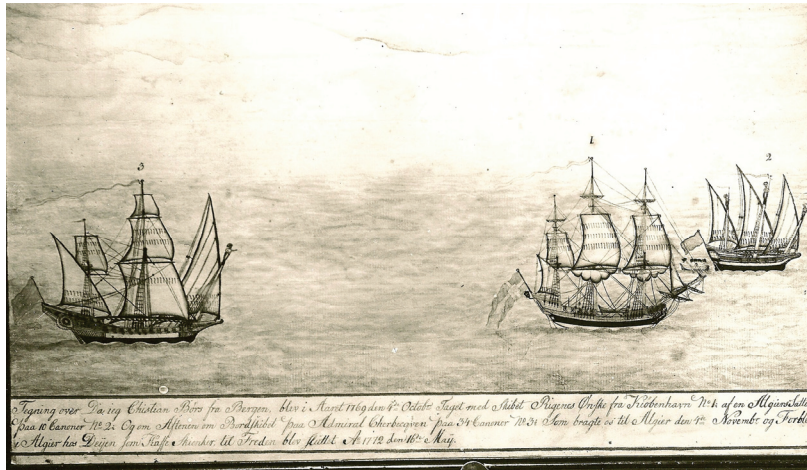 3
1
2
Tegning over Da jeg Christian Börs fra Bergen, blev i Aaret 1769 den 4de Octobr. Taget med Skibet Rigenes Ønske fra Kiøbenhavn No 1. af en Algiers
paa 10 Canoner No 2. Og om Aftenen om Bord skibet paa Admiral paa 34 Canoner No 3. Som bragte os til Algier den 4de Novembr. og
i Algier hos Deijen som Kaffe Skienker til Freden blev sluttet Ao 1772 den 16de Maij.